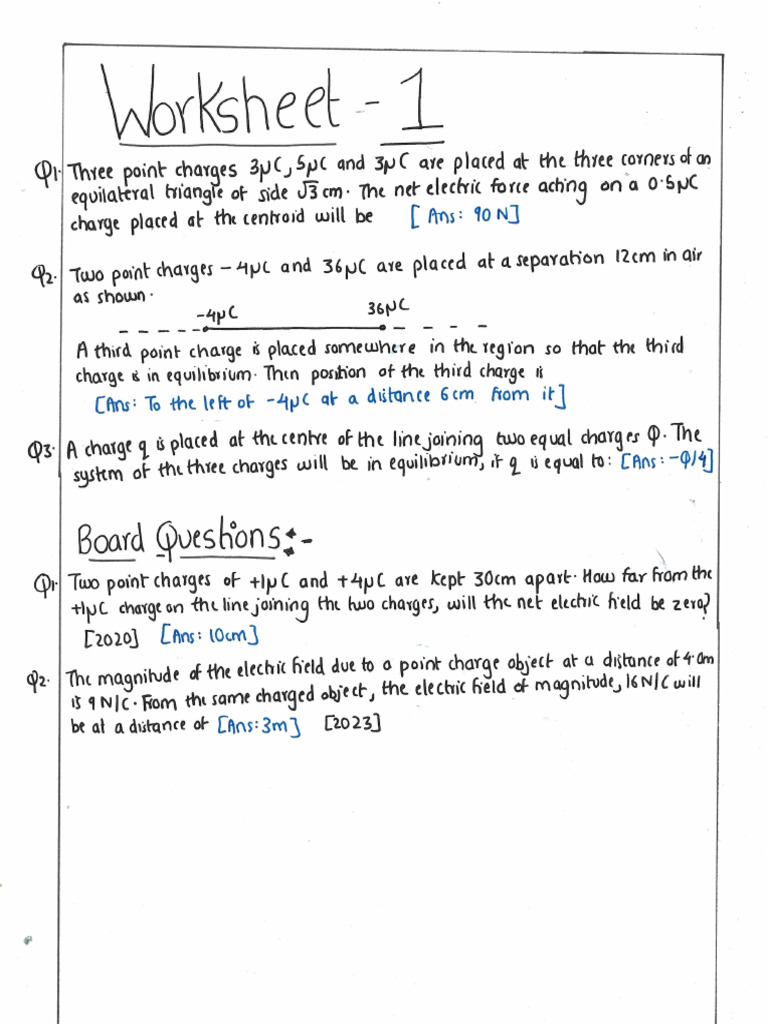 Worksheet - 1
Q1. Three point charges 3μC, 5μC and 3μC are placed at the three corners of an
equilateral triangle of side √3 cm. The net electric force acting on a 0.5μC
charge placed at the centroid will be [Ans: 90 N]
Q2. Two point charges -4μC and 36μC are placed at a separation 12cm in air
as shown.
-4μC 36μC
A third point charge is placed somewhere in the region so that the third
charge is in equilibrium. Then position of the third charge is
[Ans: To the left of -4μC at a distance 6cm from it]
Q3. A charge q is placed at the centre of the line joining two equal charges Q. The
system of the three charges will be in equilibrium, if q is equal to: [Ans: -Q/4]
Board Questions:-
Q1. Two point charges of +1μC and +4μC are kept 30cm apart. How far from the
+1μC charge on the line joining the two charges, will the net electric field be zero?
[2020] [Ans: 10cm]
Q2. The magnitude of the electric field due to a point charge object at a distance of 4.0m
is 9 N/C. From the same charged object, the electric field of magnitude, 16 N/C will
be at a distance of [Ans: 3m] [2023]